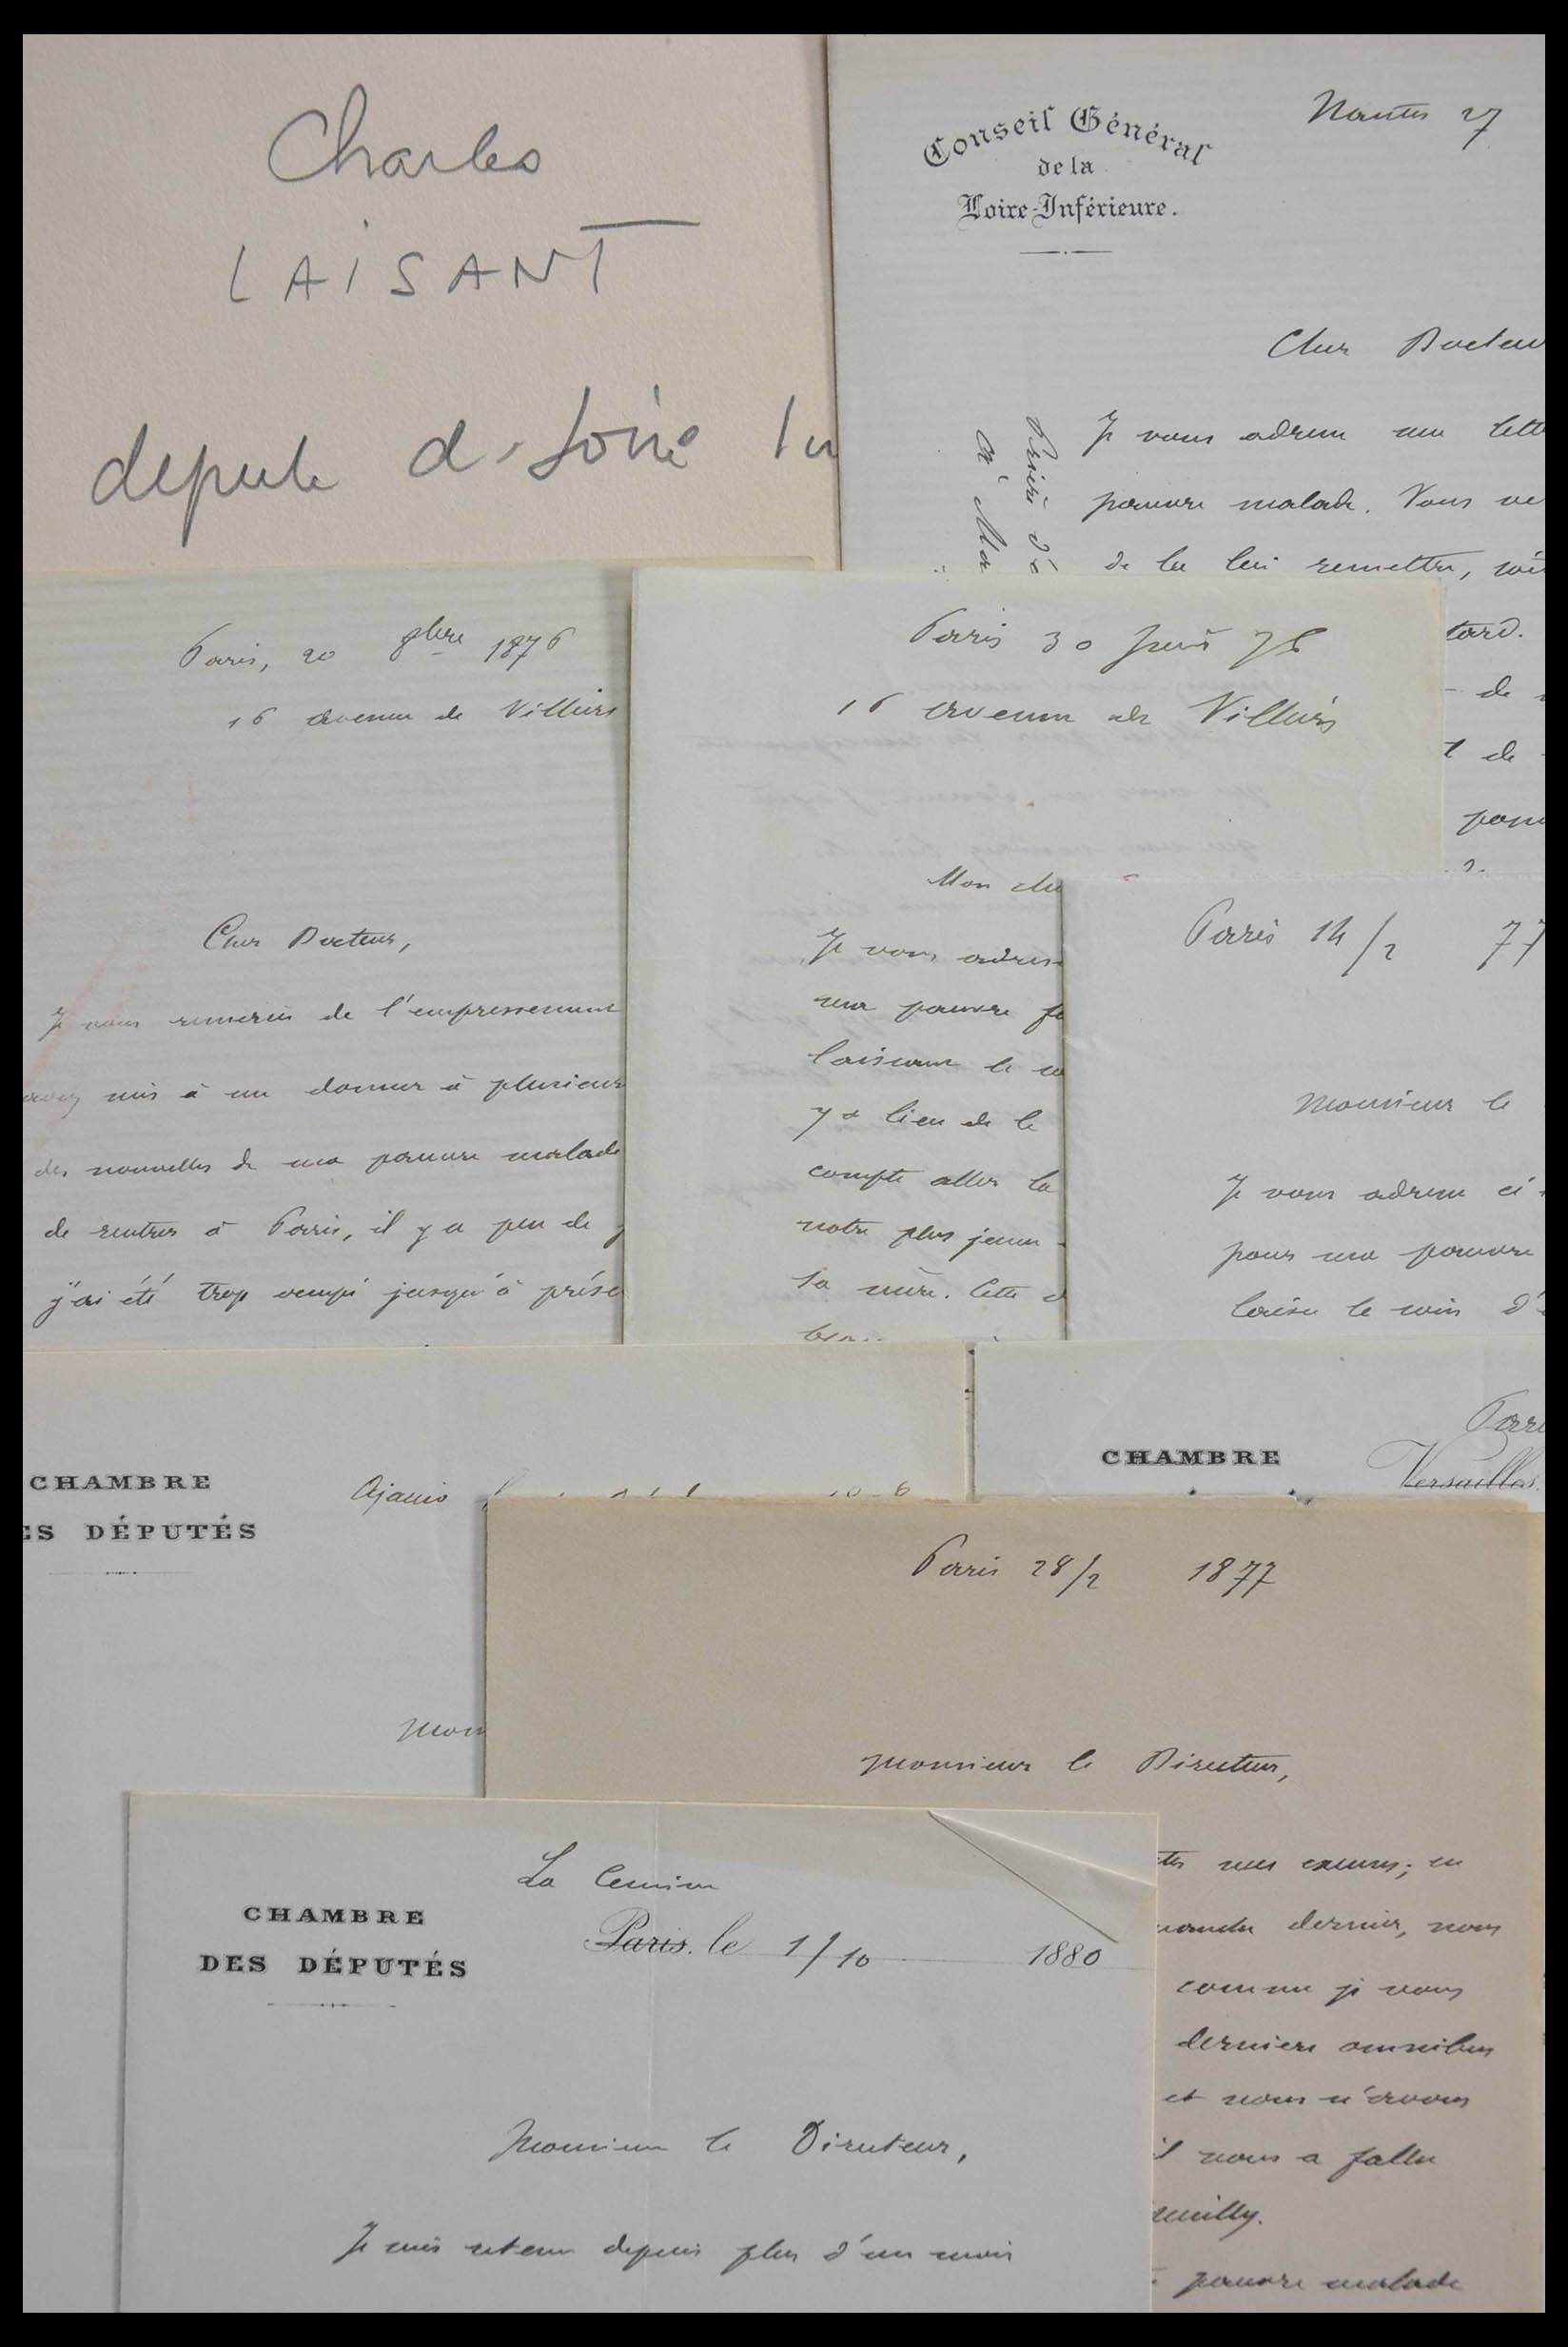 Charles
LAISANT
depute d
Conseil Général
de la
Loire-Inférieure.
Nantes 27
Cher Docteu
Je vous adresse une lett
pauvre malade. Vous ve
de la lui remettre, soi
tard.
de
de
Paris, 20 8bre 1876
16 avenue de Villiers
Cher Docteur,
Je vous remercie de l'empressement
avez mis à me donner à plusieurs
des nouvelles de ma pauvre malade
de rentrer à Paris, il y a peu de j
j'ai été trop occupé jusqu'à prése
Paris 30 Juin 76
16 avenue de Villiers
Mon che
Je vous adress
ma pauvre fe
laissant le so
y a lieu de le
compte aller la
notre plus jeune
sa mère. Cette
Paris 14/2 77
Monsieur le
Je vous adresse ci
pour ma pauvre
laisse le soin d'
CHAMBRE
ES DÉPUTÉS
Ajaccio
Mon
CHAMBRE
Pari
Versailles
Paris 28/2 1877
Monsieur le Directeur,
mes excuses; en
dernier, nous
comme je vous
derniers omnibus
et nous n'avons
il nous a fallu
pauvre malade
CHAMBRE
DES DÉPUTÉS
La
Paris, le 1/10 1880
Monsieur le Directeur,
Je suis retenu depuis plus d'un mois